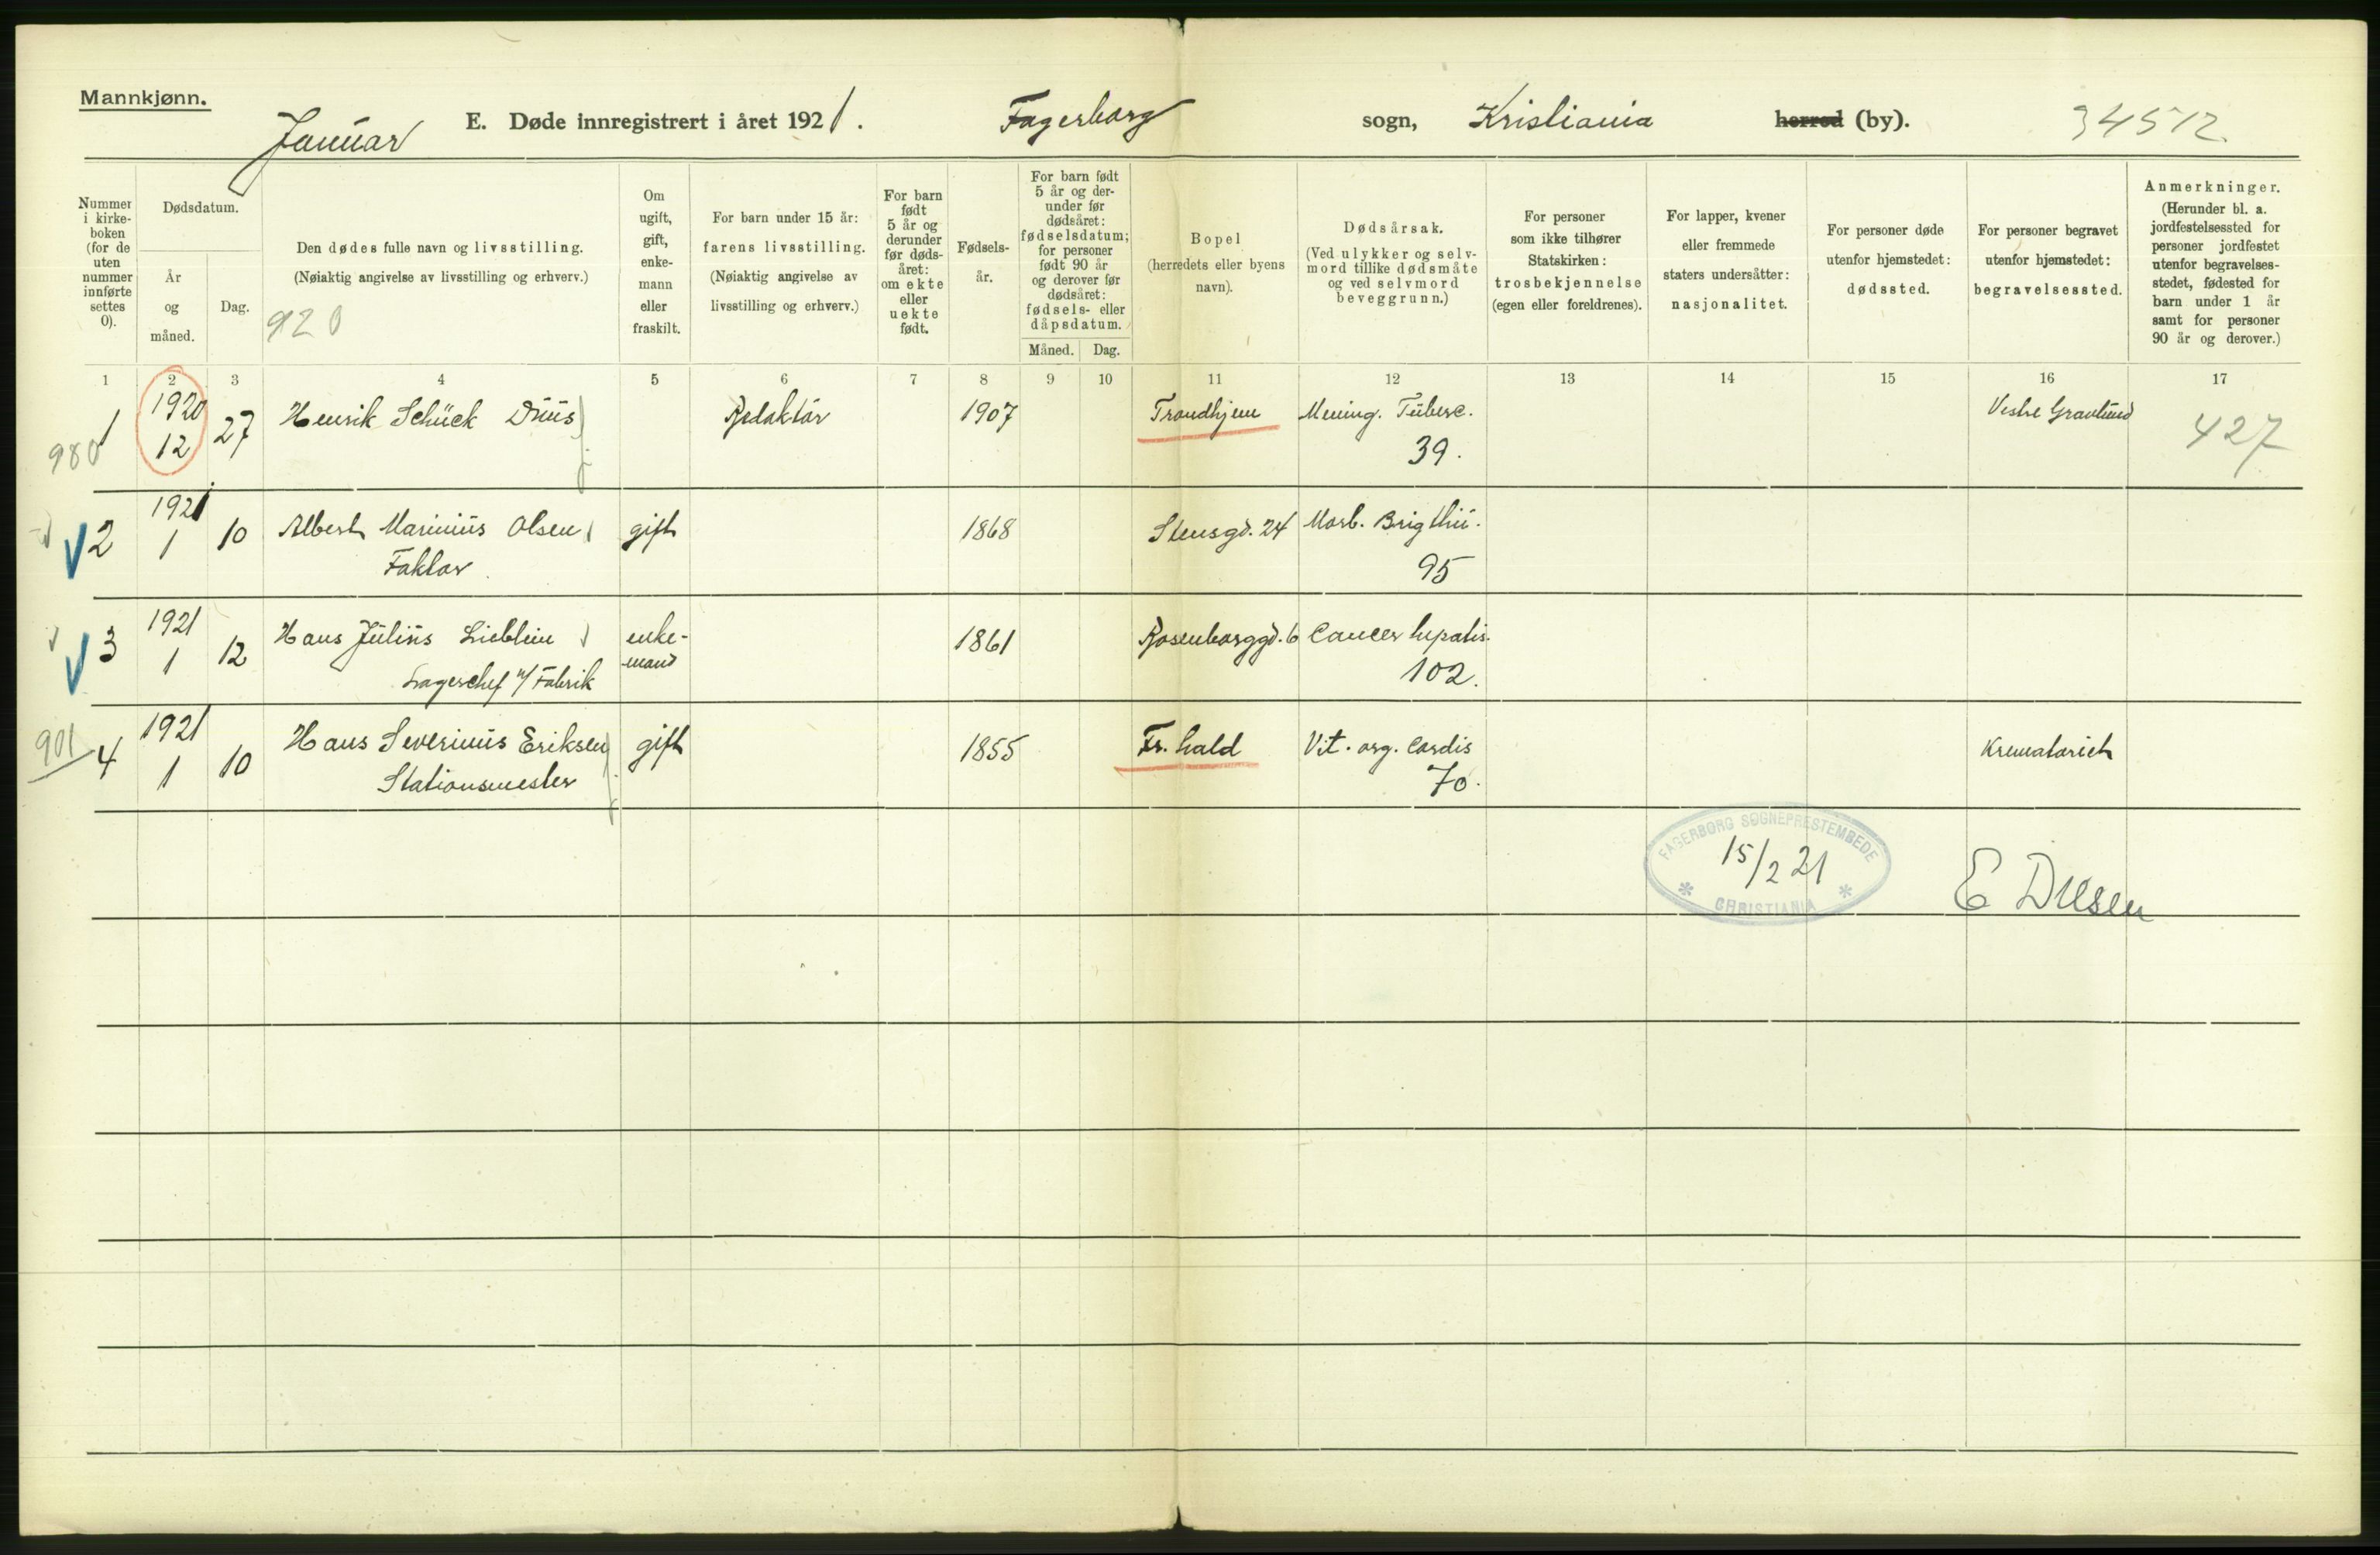 Mannkjønn.
Januar E. Døde innregistrert i året 1921. Fagerborg sogn, Kristiania herred (by). 34512
Nummer i kirke-boken (for de uten nummer innførte settes 0).
Dødsdatum.
År og måned.
Dag.
Den dødes fulle navn og livsstilling.
(Nøiaktig angivelse av livsstilling og erhverv.)
920
Om ugift, gift, enke-mann eller fraskilt.
For barn under 15 år:
farens livsstilling.
(Nøiaktig angivelse av livsstilling og erhverv.)
For barn født 5 år og derunder før døds-året: om ekte eller uekte født.
Fødsels-år.
For barn født 5 år og der-under før dødsåret: fødselsdatum; for personer født 90 år og derover før dødsåret: fødsels- eller dåpsdatum.
Måned. Dag.
Bopel
(herredets eller byens navn).
Dødsårsak.
(Ved ulykker og selv-mord tillike dødsmåte og ved selvmord beveggrunn.)
For personer som ikke tilhører Statskirken:
trosbekjennelse
(egen eller foreldrenes).
For lapper, kvener eller fremmede staters undersåtter:
nasjonalitet.
For personer døde utenfor hjemstedet:
dødssted.
For personer begravet utenfor hjemstedet:
begravelsessted.
Anmerkninger.
(Herunder bl. a. jordfestelsessted for personer jordfestet utenfor begravelses-stedet, fødested for barn under 1 år samt for personer 90 år og derover.)
1 2 3 4 5 6 7 8 9 10 11 12 13 14 15 16 17
980 1 1920 12 27 Henrik Schück Duus Redaktör 1907 Trondhjem Mening. Tuberc. 39. Vestre Gravlund 427
2 1921 1 10 Albert Marinius Olsen gift 1868 Stensgd. 24 Morb. Brigthii. 95
Faktor
3 1921 1 12 Hans Julius Lieblein enke-mand 1861 Rosenborggd. 6 Cancer hepatis. 102.
Lagerchef v/ Fabrik
901 4 1921 1 10 Hans Severinus Eriksen gift 1855 Fr. hald Vit. org. cordis 70. Krematoriet
Stationsmester
FAGERBORG SOGNEPRESTEMBEDE
15/2 21
CHRISTIANIA